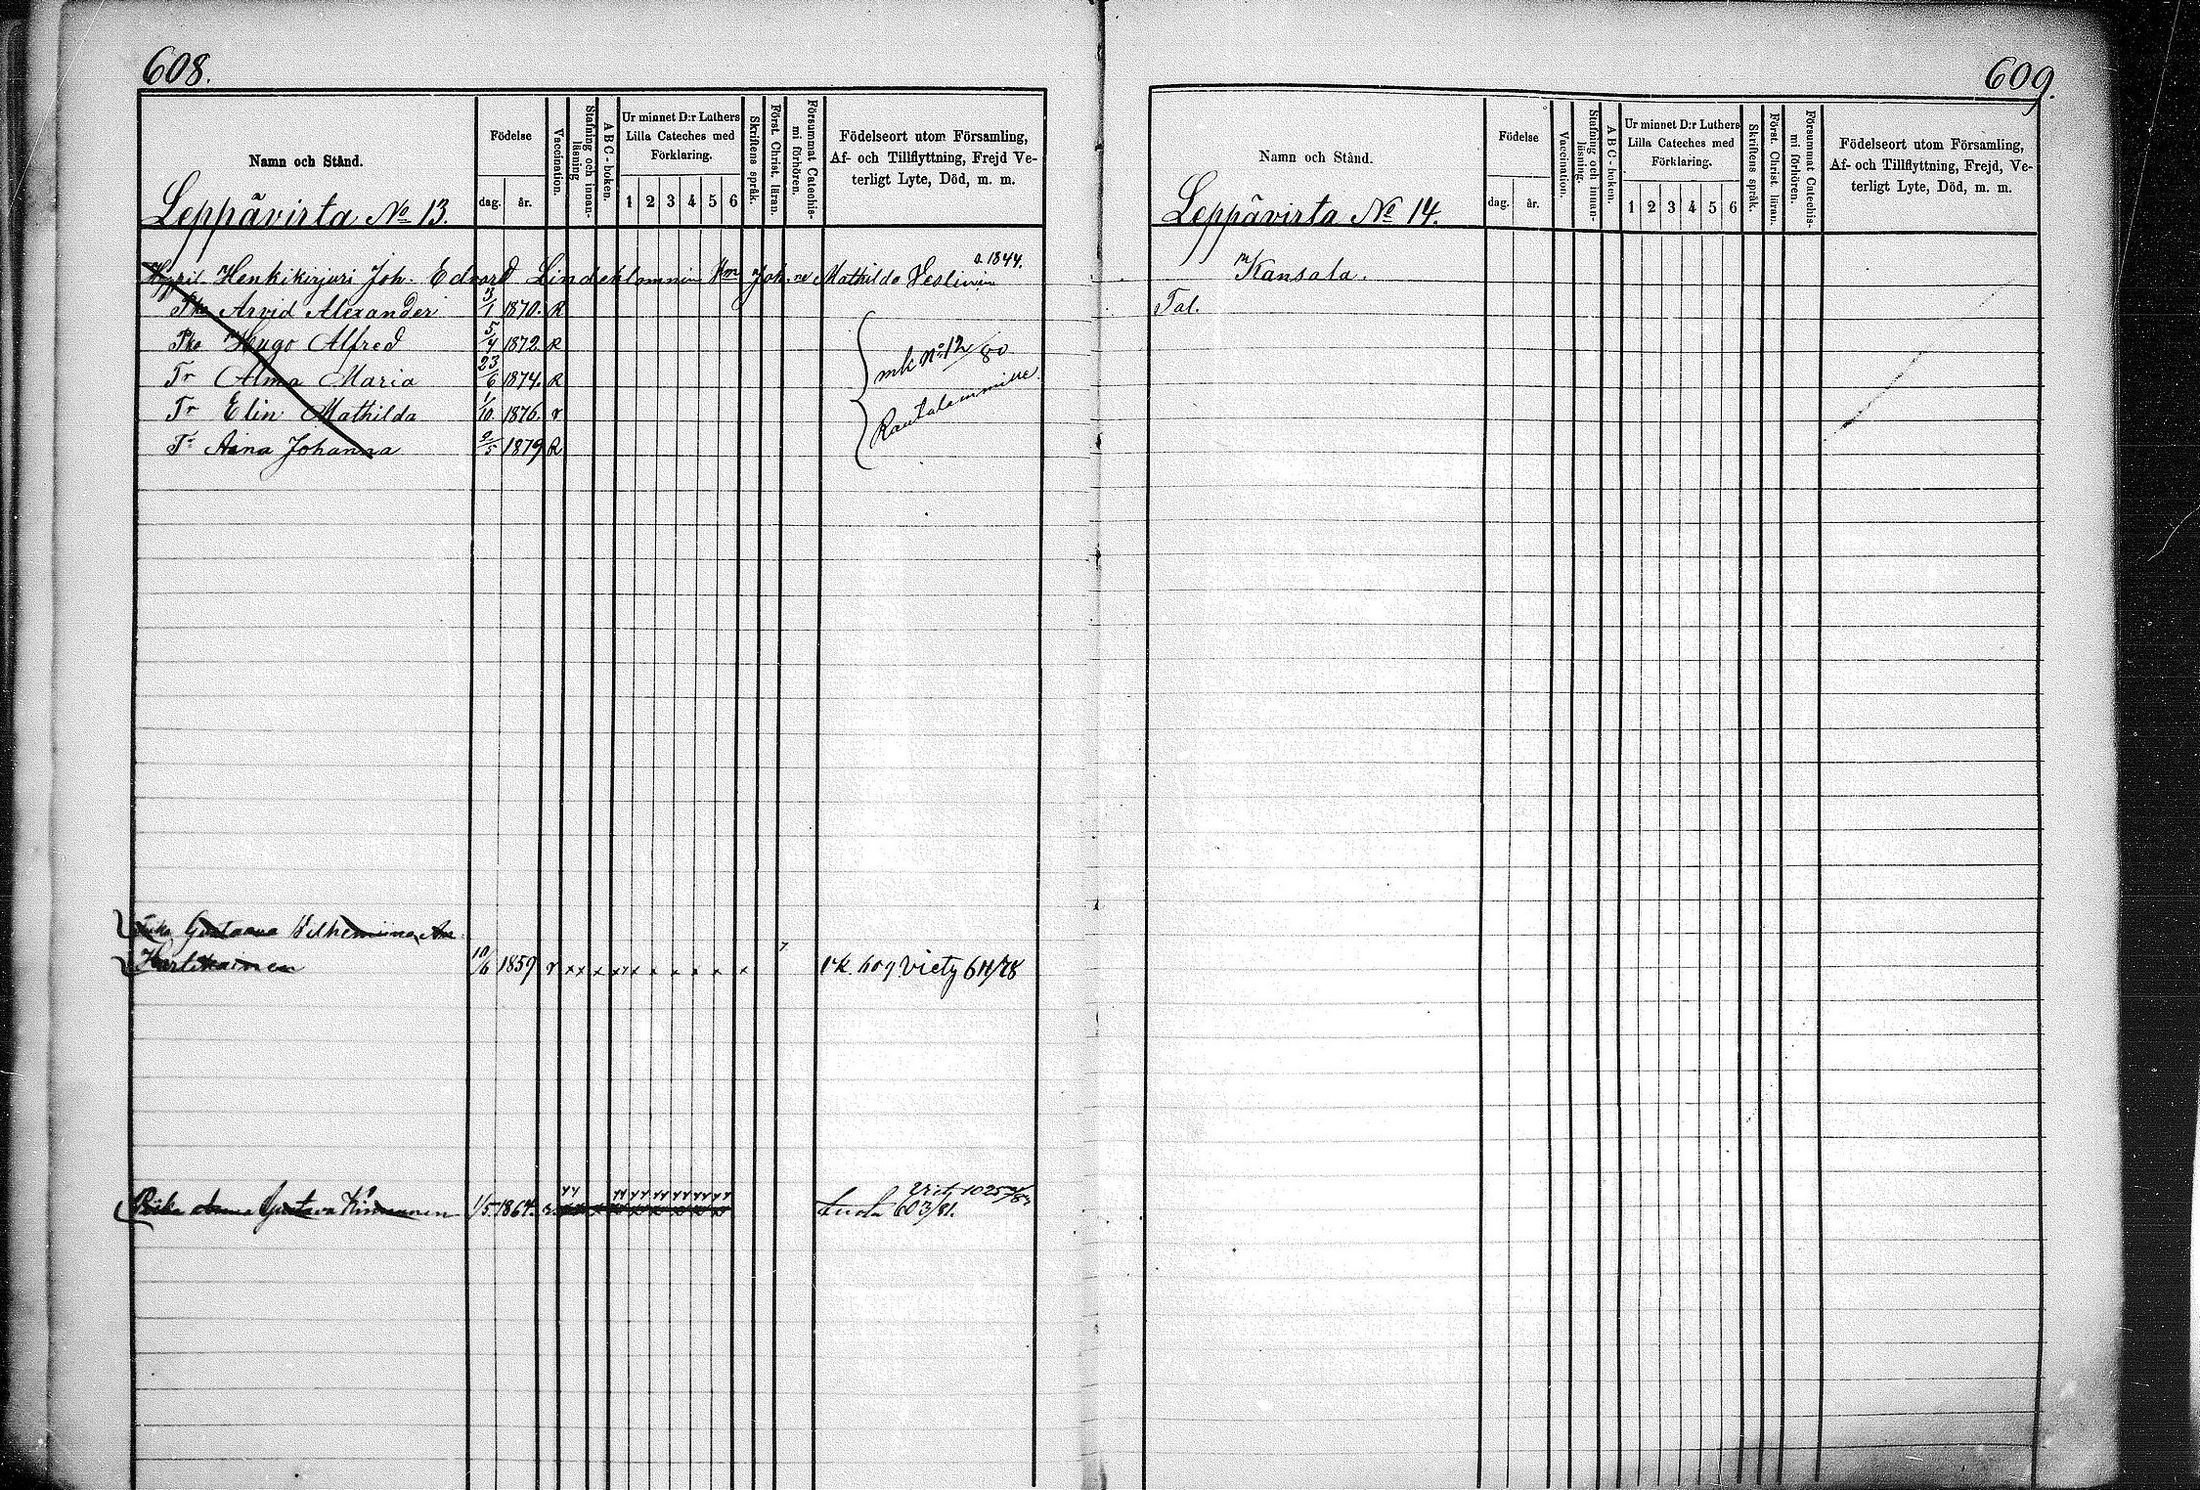 608.
Namn och Stånd.
Födelse
dag. år.
Vaccination.
Stafning och innanläsning
ABC-boken.
Ur minnet D:r Luthers
Lilla Cateches med
Förklaring.
1 2 3 4 5 6
Skriftens språk.
Först. Christ. läran.
Försummat Catechismi förhören.
Födelseort utom Församling,
Af- och Tillflyttning, Frejd Ve-
terligt Lyte, Död, m. m.
Leppävirta No 13.
Henkikirjuri Joh. Edvard Mathilda o. 1844.
Arvid Alexanderi 3/1 1870. R
Pka Hugo Alfred 5/4 1872 R
mk No 12/80
Tr Alma Maria 23/6 1874. R
Rautalammille
Tr Elin Mathilda 1/10 1876. r
Tr Aina Johanna 9/5 1879 R
Gustaava Wilhelmiina
10/6 1859 r xx x x x x x x x x 609 Viety 611/78
Gustava 1/5. 1864. 603/81.
609.
Namn och Stånd.
Födelse
dag. år.
Vaccination.
Stafning och innanläsning.
ABC-boken.
Ur minnet D:r Luthers
Lilla Cateches med
Förklaring.
1 2 3 4 5 6
Skriftens språk.
Först. Christ. läran.
Försummat Catechismi förhören.
Födelseort utom Församling,
Af- och Tillflyttning, Frejd, Ve-
terligt Lyte, Död, m. m.
Leppävirta No 14.
Kansala.
Tal.